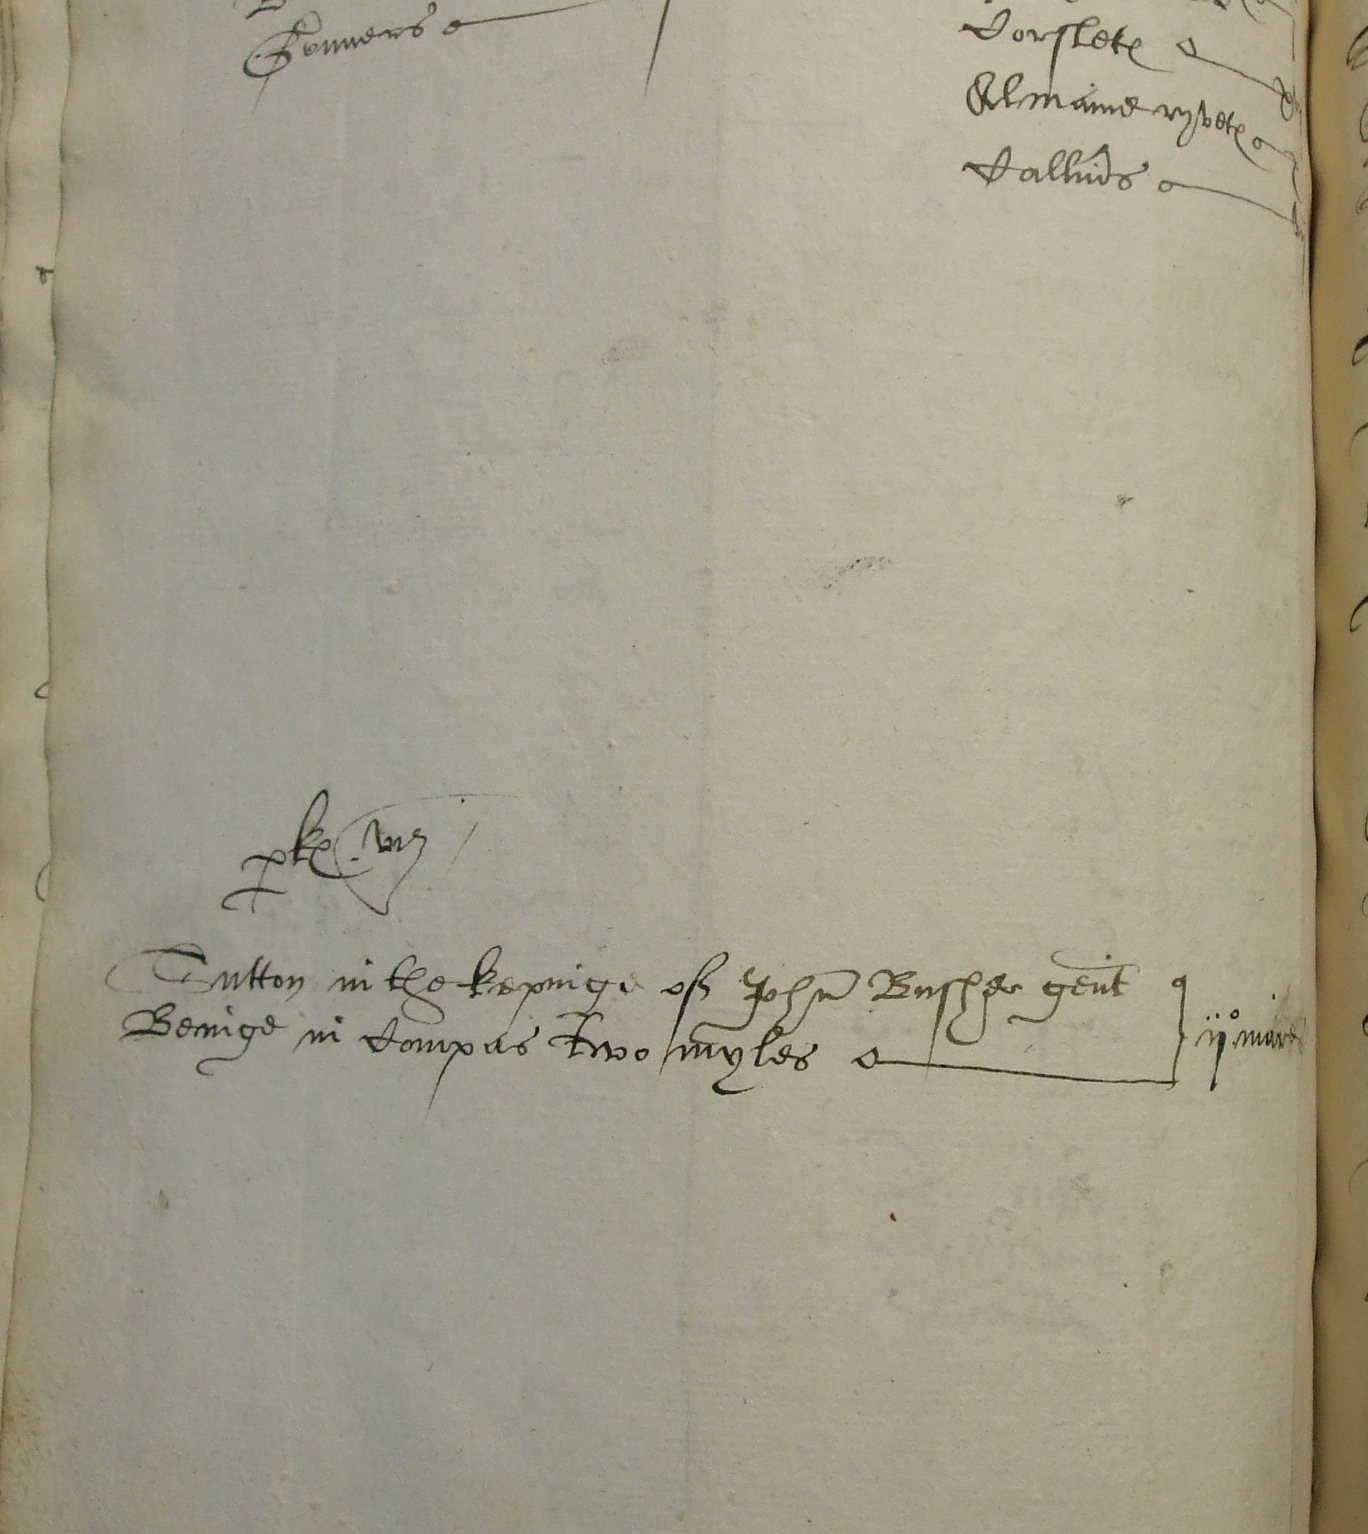 Gonners
Corslet℮
Almaine ryvet℮
Calliũs
p̱k℮
Sutton in the kepinge of John̄ Bussher gent̄
Beinge in Compas two myles
ij° mares